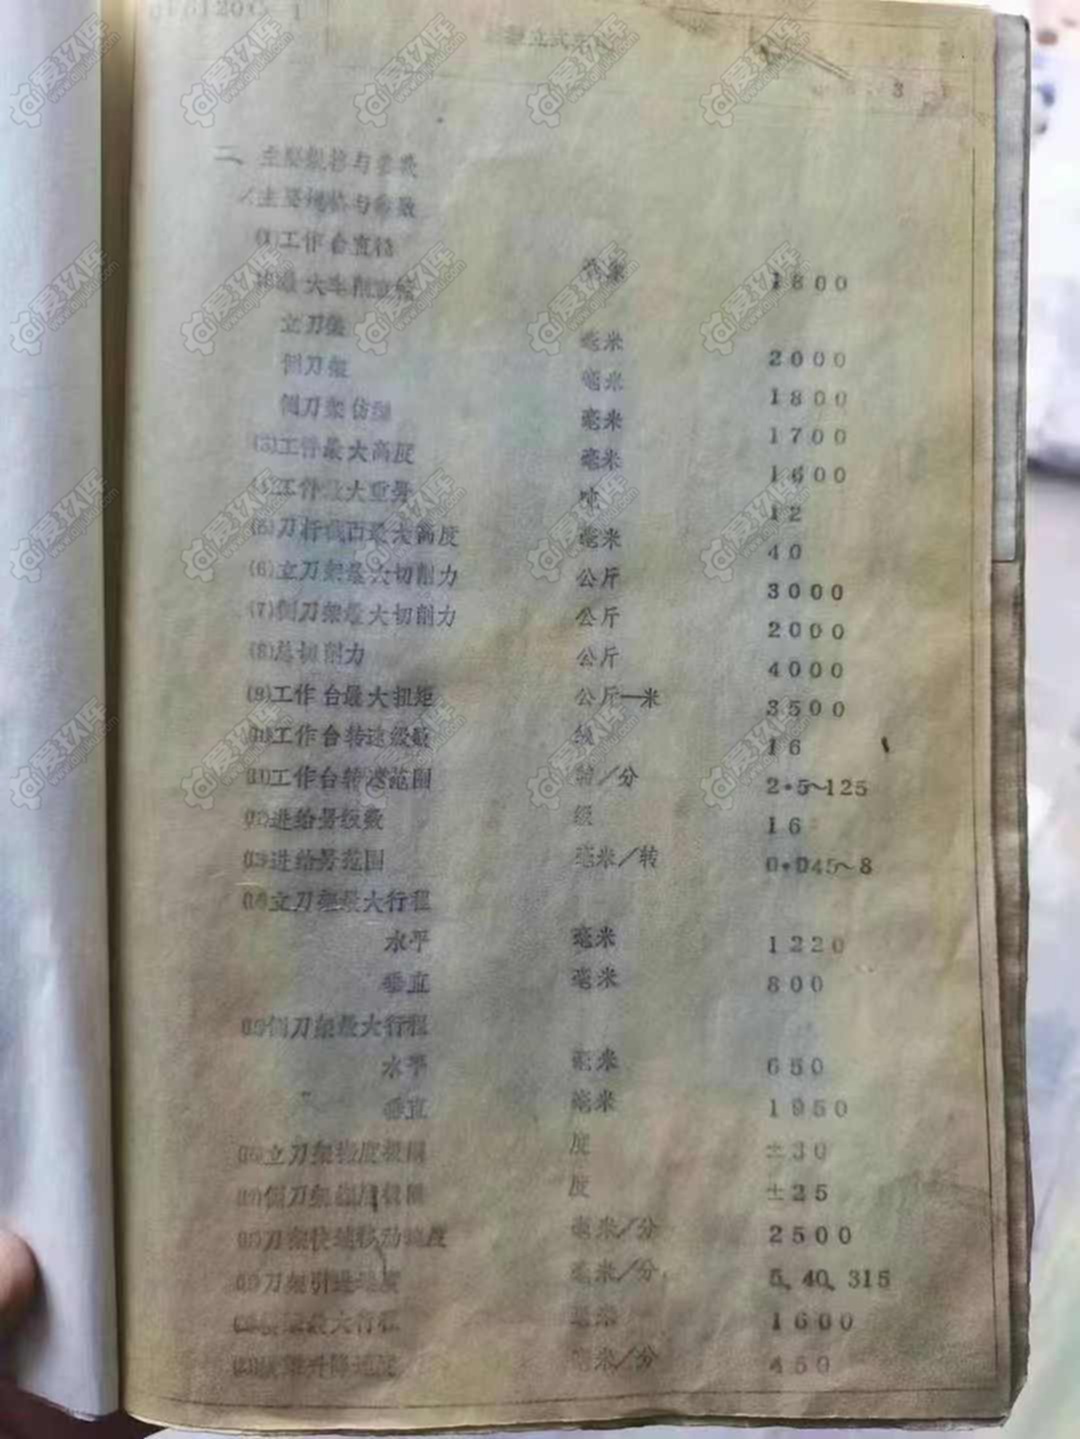 二、主要规格与参数
主要规格与参数
⑴工作台直径 毫米 1800
最大车削直径
立刀架 毫米 2000
侧刀架 毫米 1800
侧刀架仿 毫米 1700
⑶工件最大高度 毫米 1600
工件最大重 12
⑸刀杆截面最大高度 毫米 40
⑹立刀架最大切削力 公斤 3000
⑺侧刀架最大切削力 公斤 2000
⑻总切削力 公斤 4000
⑼工作台最大扭矩 公斤—米 3500
⑽工作台转速级数 级 16
⑾工作台转速范围 转/分 2·5~125
⑿进给量级数 级 16
⒀进给量范围 毫米/转 0·045~8
⒁立刀架最大行程
水平 毫米 1220
垂直 毫米 800
⒂侧刀架最大行程
水平 毫米 650
垂直 毫米 1950
立刀架 度 ±30
侧刀架 度 ±25
刀架快速移动速度 毫米/分 2500
刀架引进速度 毫米/分 5、40、315
最大行程 毫米 1600
升降速度 毫米/分 450